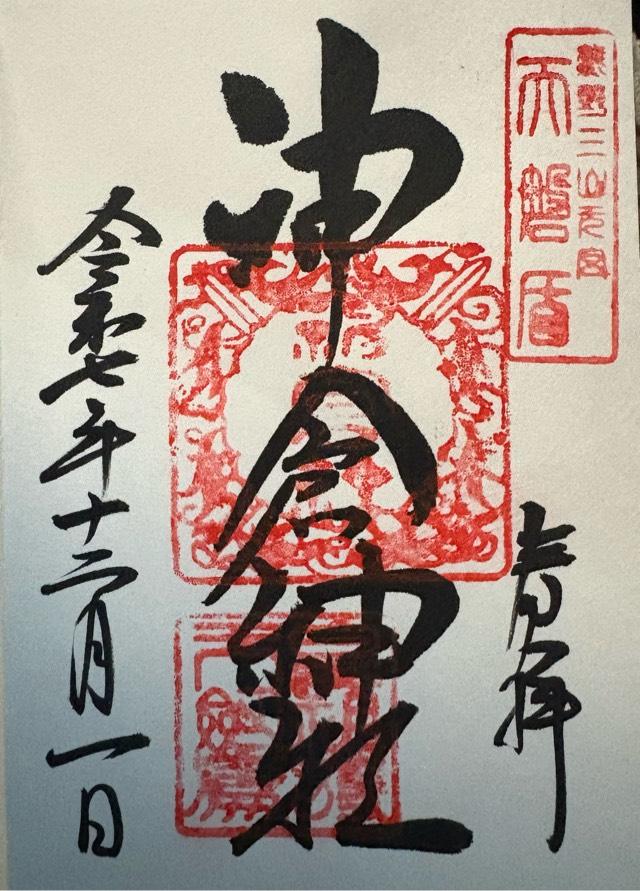 熊野三山元宮
天磐盾
奉拝
神倉神社
令和七年十二月一日